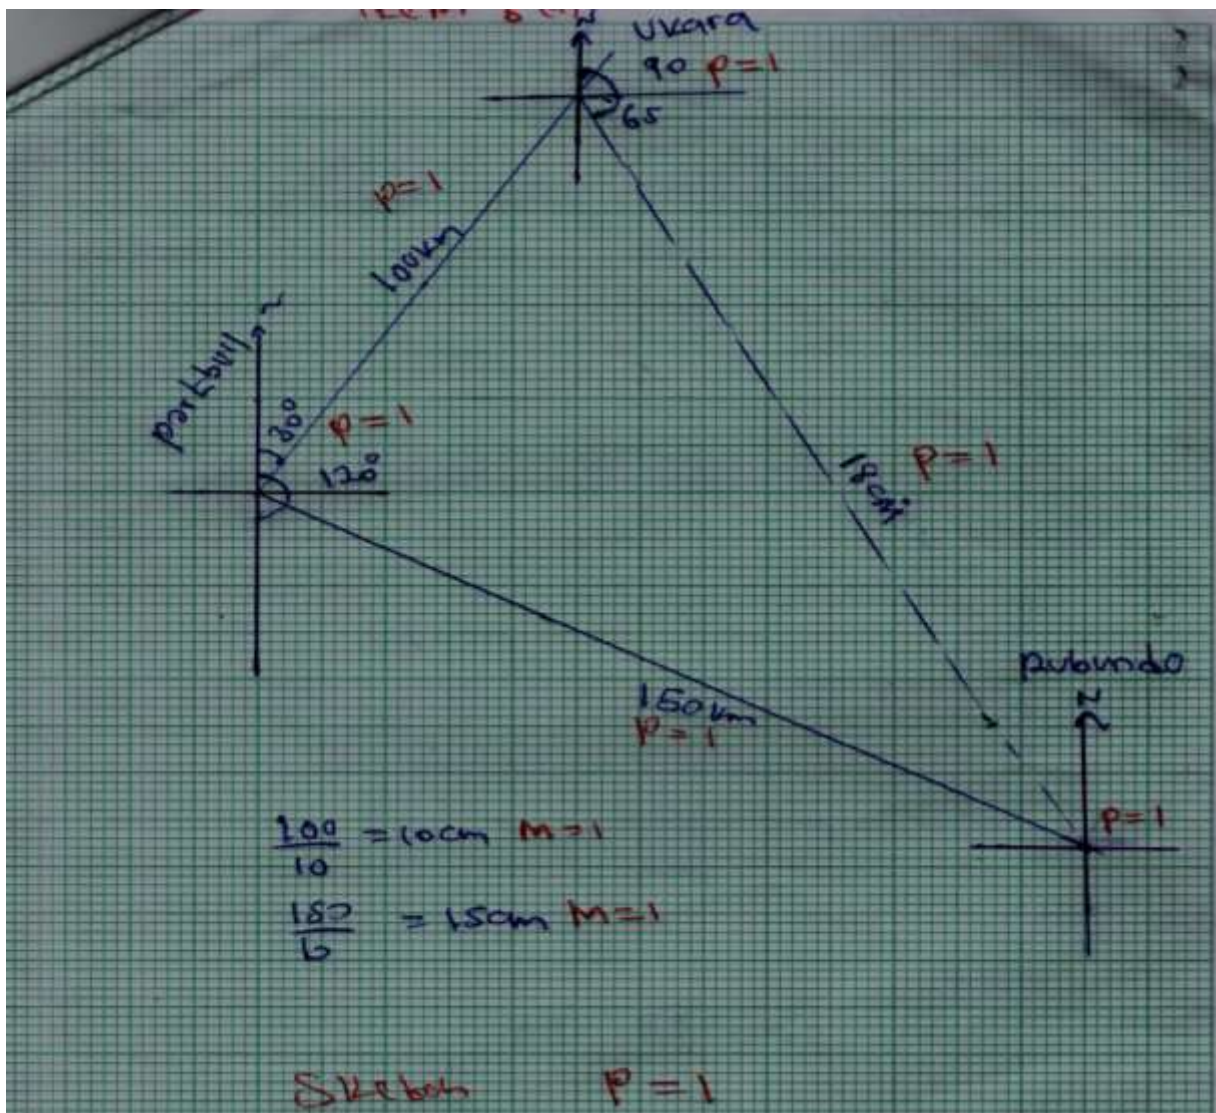 N
Ukara
90 P=1
65
P=1
100km
N
parkbull
P=1
120°
18cm P=1
pubundo
N
150km
P=1
P=1
100/10 = 10cm M=1
= 15cm M=1
Sketch P=1